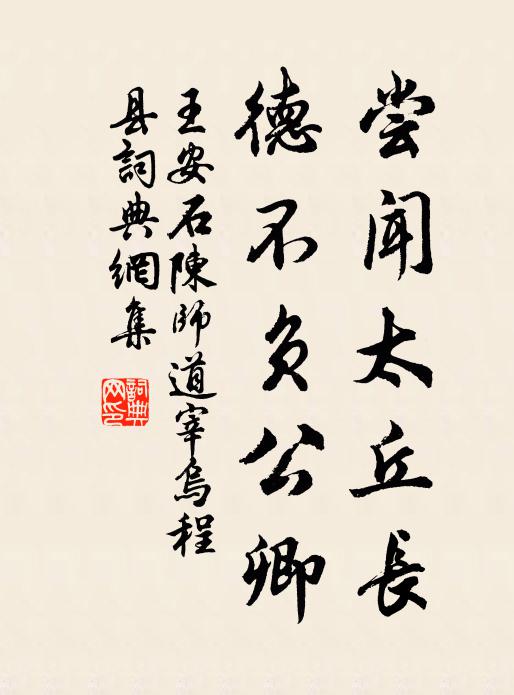 尝闻太丘長
德不负公卿
王安石陳師道宰烏程
县詞典網集
詞典
网印